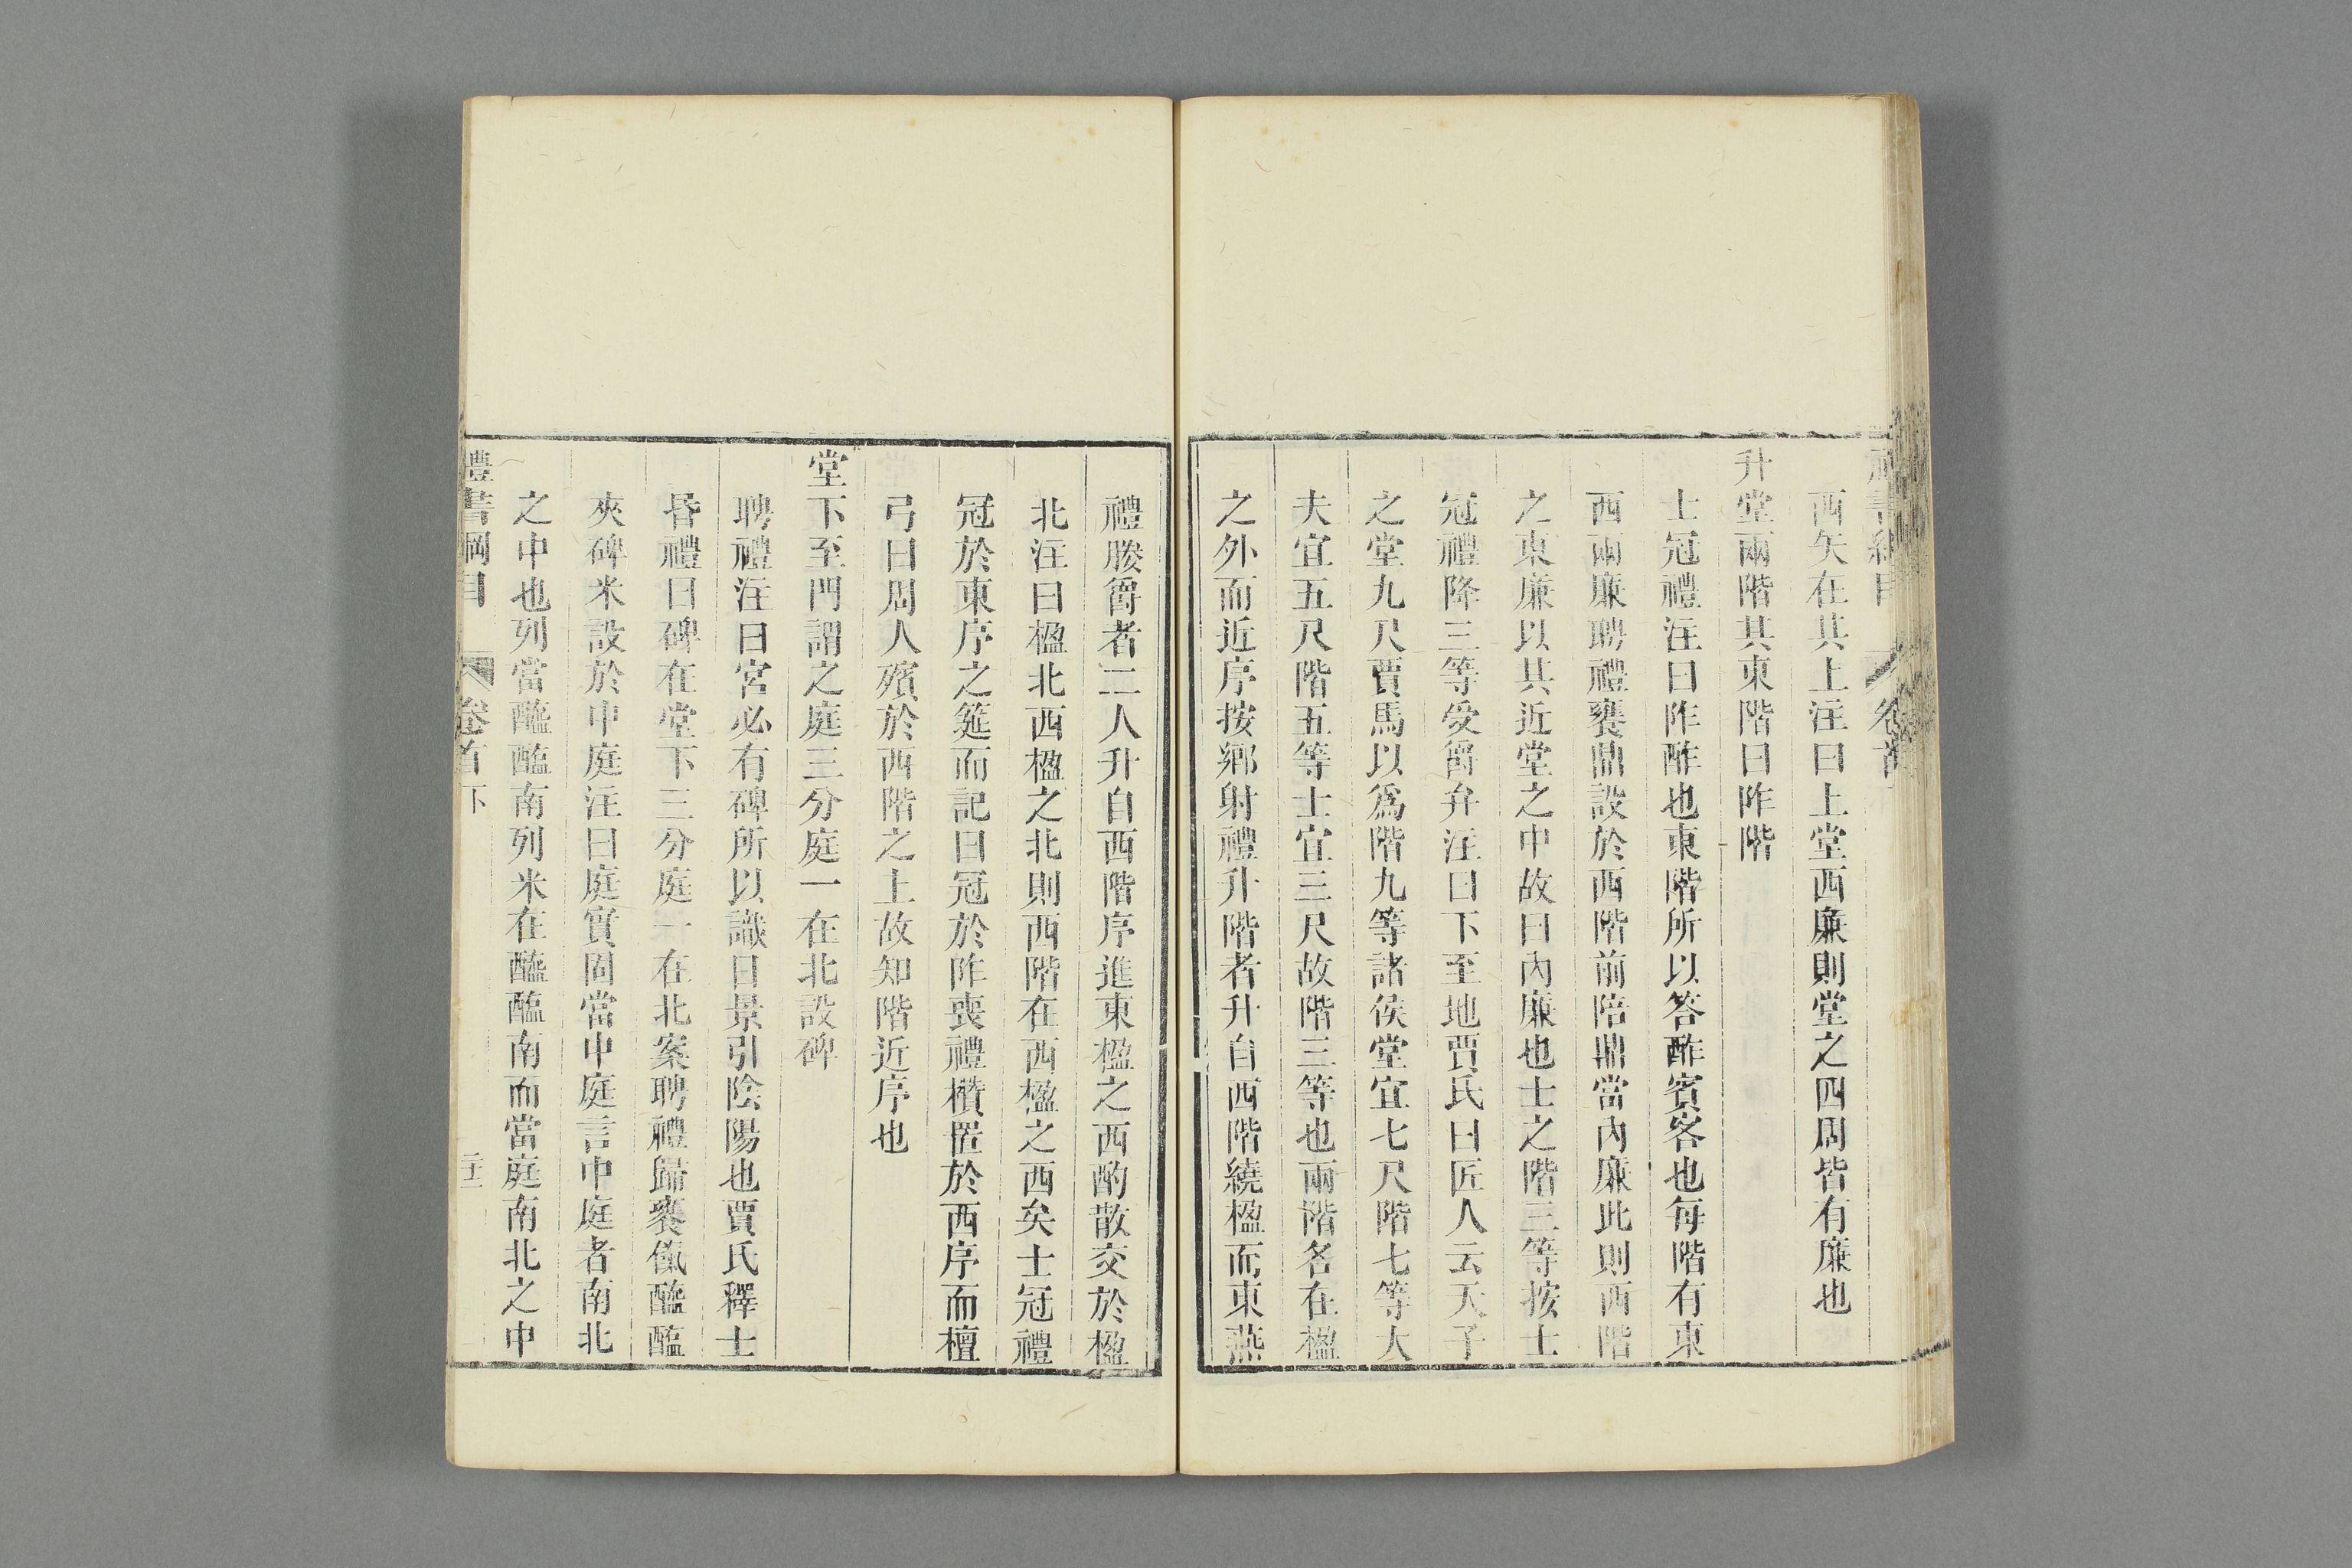 西矢在其上注曰上堂西廉則堂之四周皆有廉也
升堂兩階其東階曰阼階
士冠禮注曰阼酢也東階所以答酢賓客也每階有東
西兩廉聘禮饔鼎設於西階前陪鼎當內廉此則西階
之東廉以其近堂之中故曰內廉也士之階三等按士
冠禮降三等受爵弁注曰下至地賈氏曰匠人云天子
之堂九尺賈馬以爲階九等諸侯堂宜七尺階七等大
夫宜五尺階五等士宜三尺故階三等也兩階各在楹
之外而近序按鄉射禮升階者升自西階繞楹而東燕
禮媵爵者二人升自西階序進東楹之西酌散交於楹
北注曰楹北西楹之北則西階在西楹之西矣士冠禮
冠於東序之筵而記曰冠於阼喪禮欑置於西序而檀
弓曰周人殯於西階之上故知階近序也
堂下至門謂之庭三分庭一在北設碑
聘禮注曰宮必有碑所以識日景引陰陽也賈氏釋士
昏禮曰碑在堂下三分庭一在北案聘禮歸饔餼醯醢
夾碑米設於中庭注曰庭實固當中庭言中庭者南北
之中也列當醯醢南列米在醯醢南而當庭南北之中
禮書綱目 卷首下 二十一